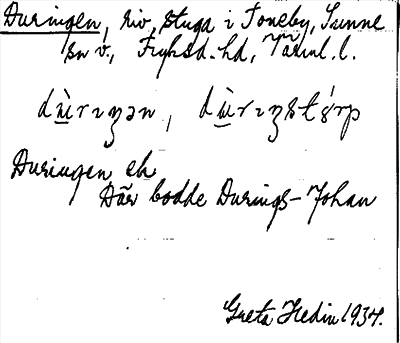 Duringen, riv. stuga i Toneby, Sunne
sn v., Fryksd. hd, Värml. l.
dù̱rɪŋən, dù̱rɪŋstɔ́rp
Duringen eh
Där bodde Durings-Johan
Greta Hedin 1934.